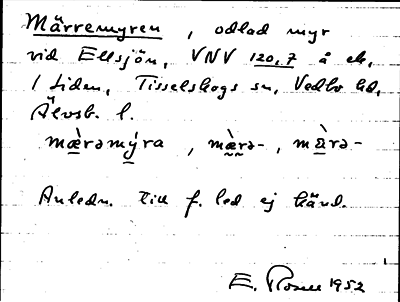 Märremyren, odlad myr
vid Ellsjön, VNV 120,7 å ek,
1 Liden, Tisselskogs sn, Vedbo hd,
Älvsb. l.
mæ̀rəmýra, mæ̀rə-, màrə-
Anledn. till f. led ej känd.
E. Rosell 1952